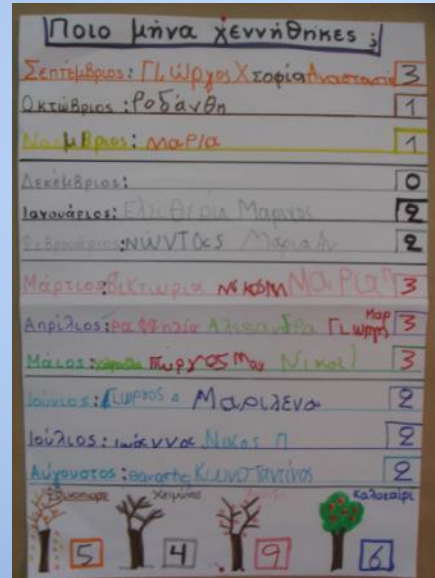 Ποιο μήνα γεννήθηκες ;
Σεπτέμβριος: Γιώργος Χ Σοφία Αναστασία 3
Οκτώβριος: Ροδάνθη 1
Νοέμβριος: ΜαΡία 1
Δεκέμβριος: 0
Ιανουάριος: Ελευθερία Μαρίνος 2
Φεβρουάριος: ΝώΝΤΑς Μαρία Αν 2
Μάρτιος: Βικτωρια Νικόλ Μαρια 3
Απρίλιος: Ραφαηλία Αλεξανδρα Γιώργος Μαρ 3
Μάιος: Γιωργος Μαχ Νικολ 3
Ιούνιος: Γιώργος Δ Μαριλένα 2
Ιούλιος: Ιωάννα Νικος Π 2
Αύγουστος: Θανάσης Κωνσταντίνος 2
Φθινόπωρο Χειμώνας Άνοιξη Καλοκαίρι
5 4 9 6